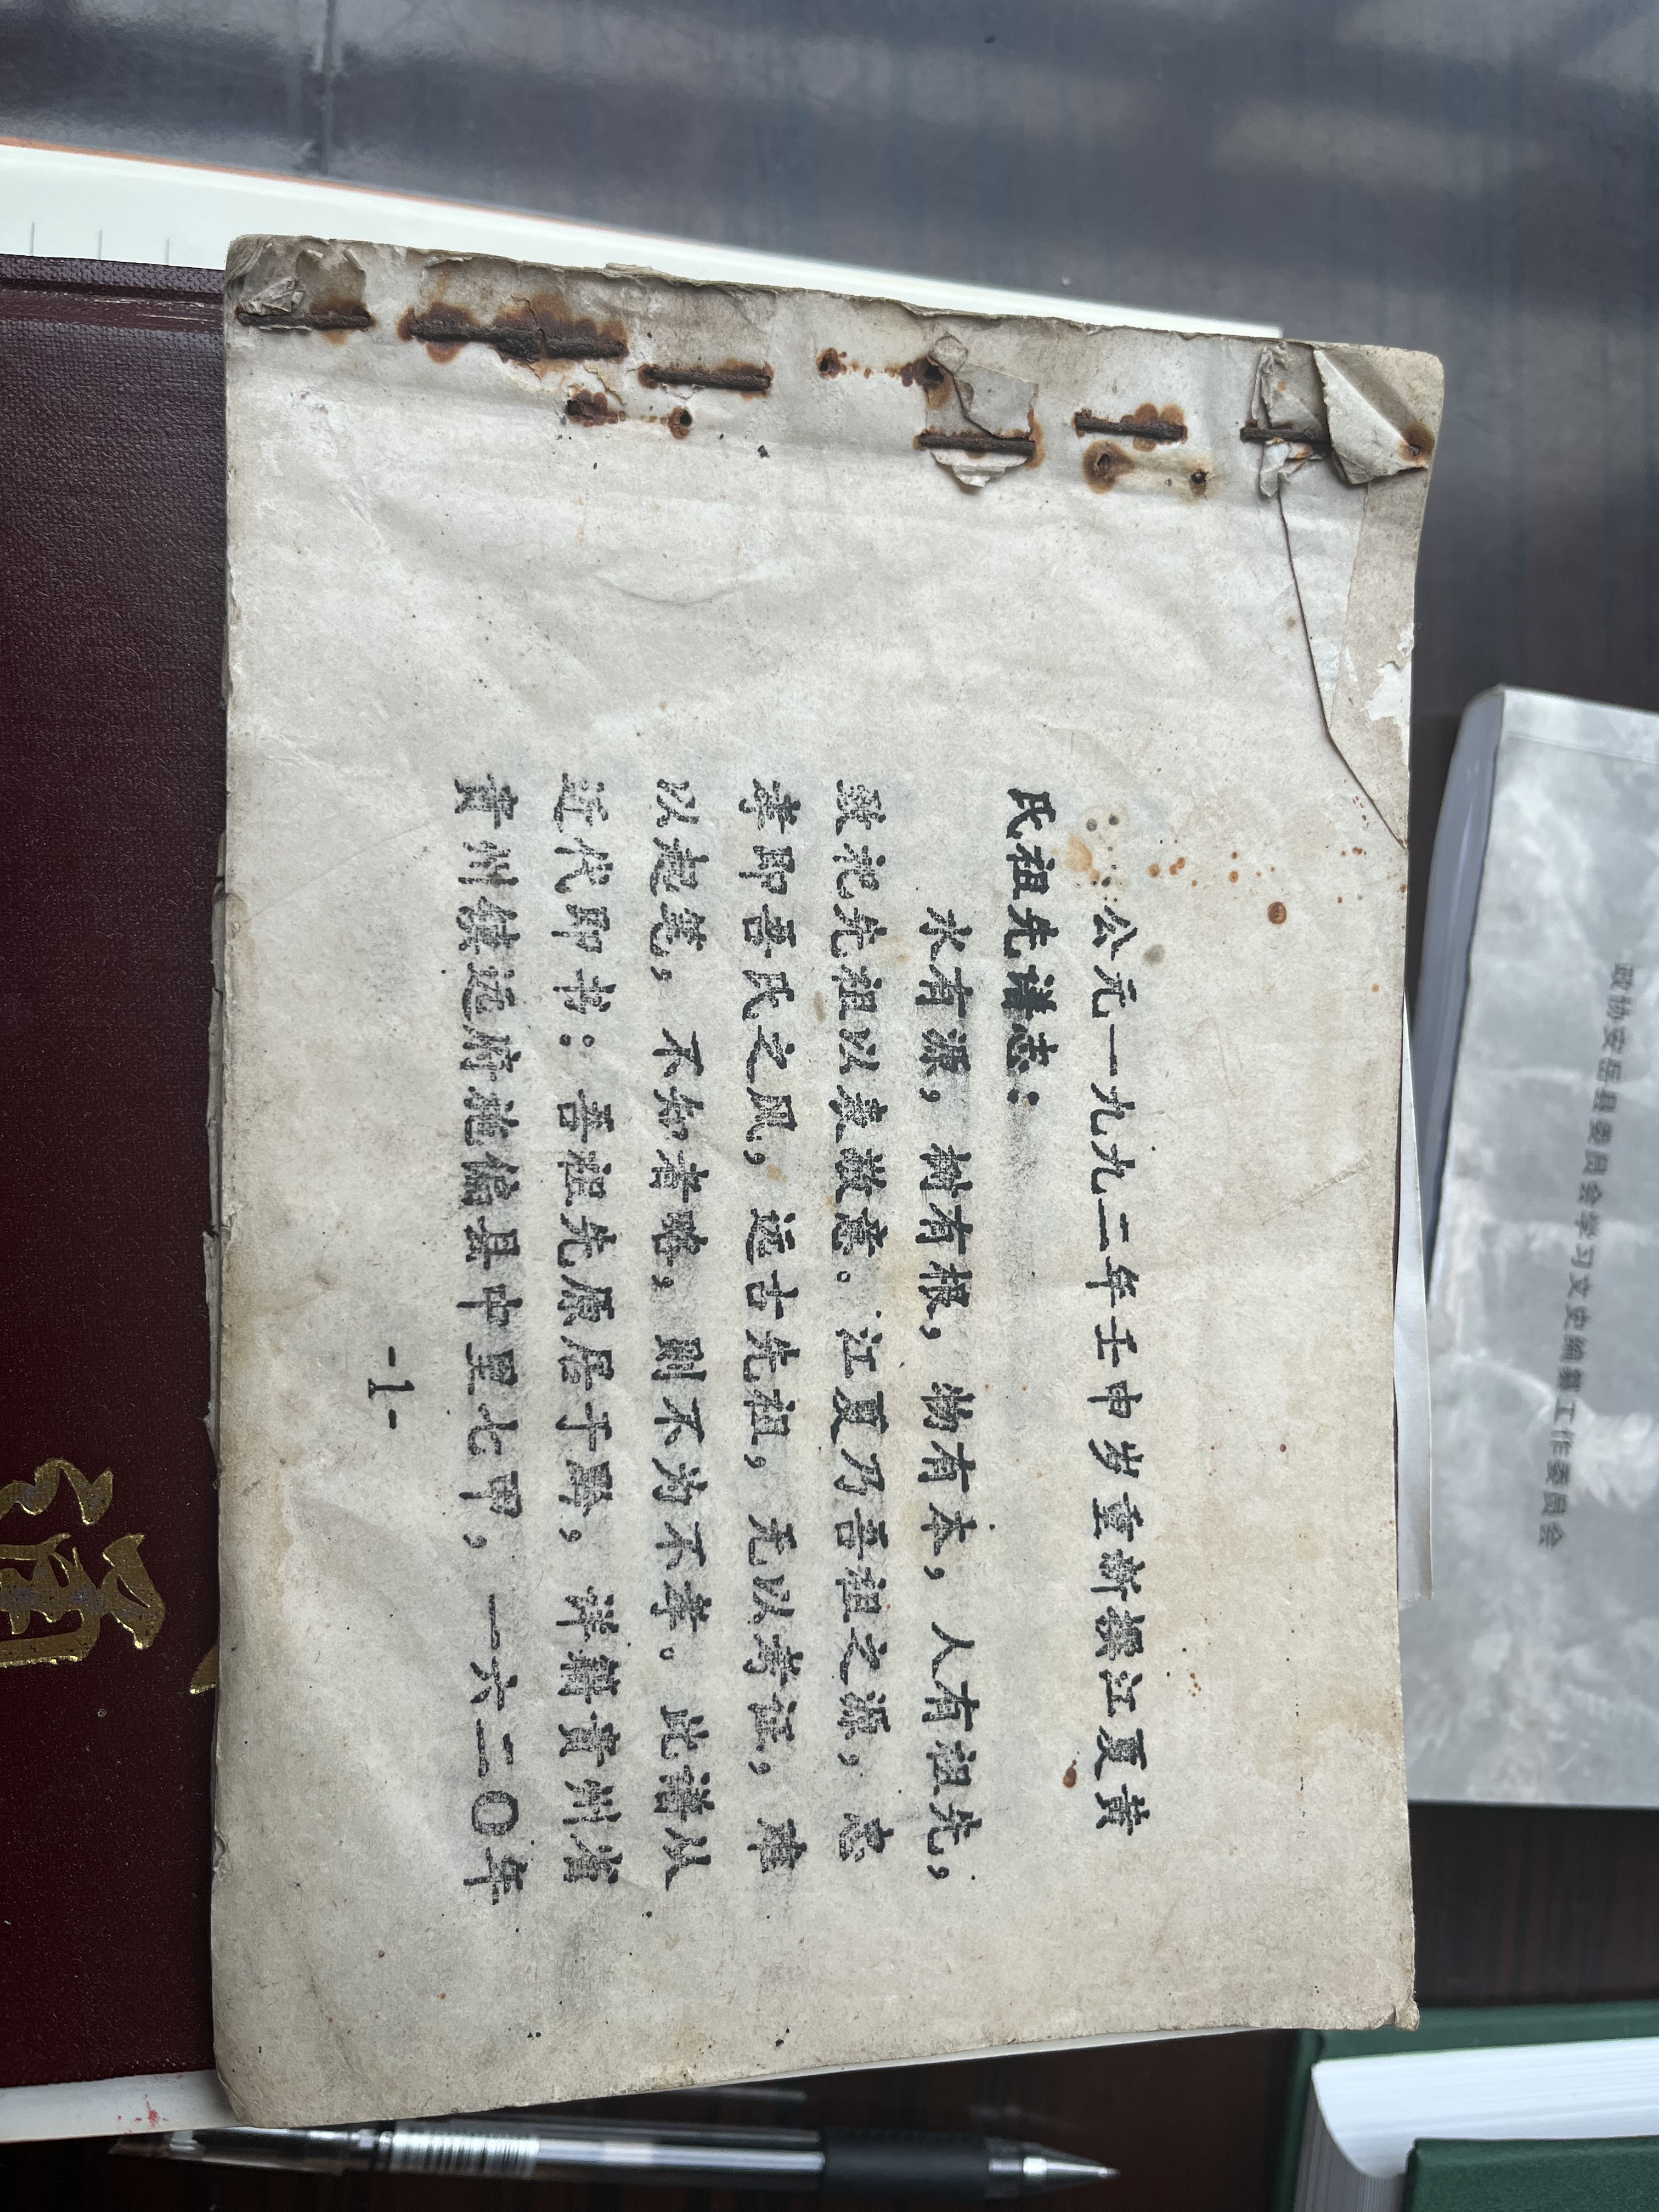 公元一九九二年壬申岁重新撰江夏黄
氏祖先谱志：
水有源，树有根，物有本，人有祖先，
致祀先祖以表敬意。江夏乃吾祖之源，忠
孝即吾氏之风，远古先祖，无以考证，难
以起笔，不知者略，则不为不孝。此谱从
近代即书：吾祖先原居于黔，祥籍贵州省
贵州镇远府施偏县中里七甲，一六二〇年
-1-
政协安岳县委员会学习文史编辑工作委员会